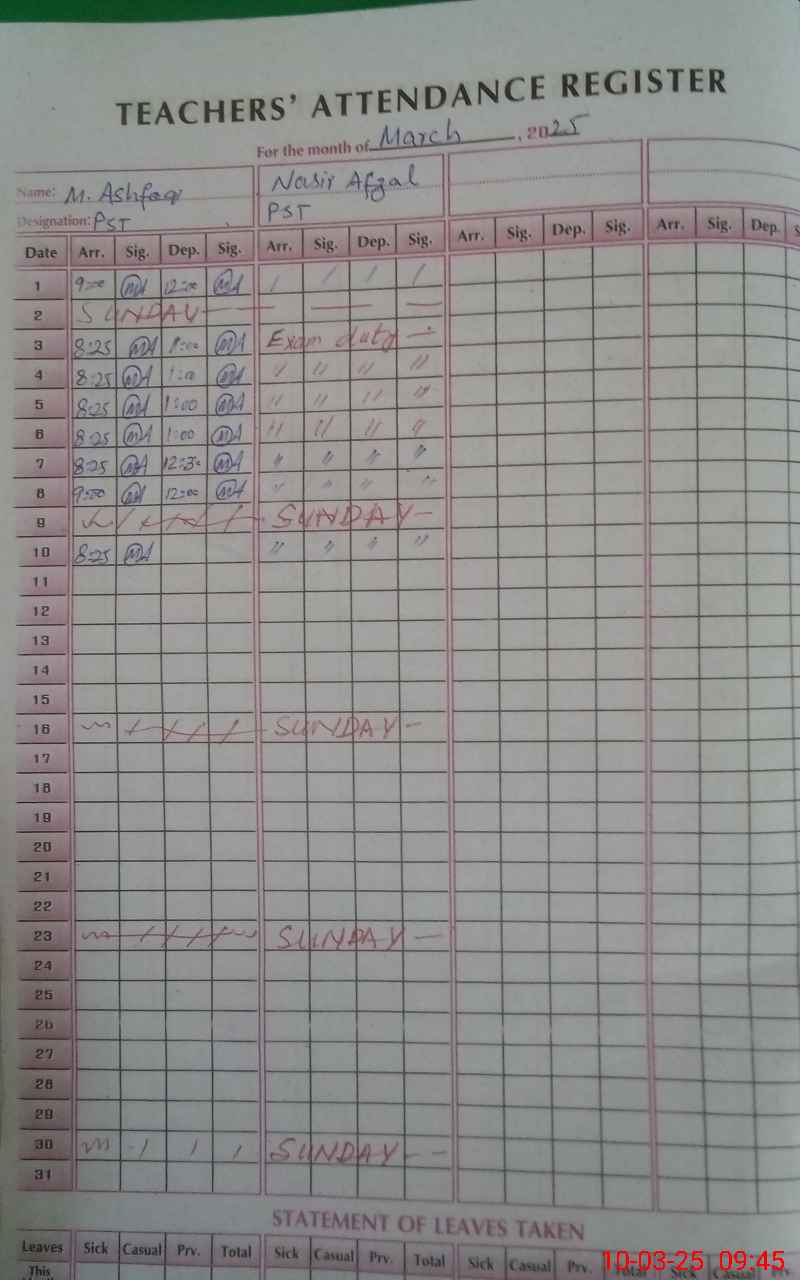 TEACHERS' ATTENDANCE REGISTER
For the month of March, 2025
Name: M. Ashfaq Nasir Afzal
Designation: PST PST
Date Arr. Sig. Dep. Sig. Arr. Sig. Dep. Sig. Arr. Sig. Dep. Sig. Arr. Sig. Dep. S
1 9:00 MA 12:00 MA / / / /
2 SUNDAY — — —
3 8:25 MA 1:00 MA Exam duty —
4 8:25 MA 1:00 MA " " " "
5 8:25 MA 1:00 MA " " " "
6 8:25 MA 1:00 MA " " " "
7 8:25 MA 12:30 MA " " " "
8 9:00 MA 12:00 MA " " " "
9 SUNDAY —
10 8:25 MA " " " "
11
12
13
14
15
16 SUNDAY —
17
18
19
20
21
22
23 SUNDAY —
24
25
26
27
28
29
30 SUNDAY — —
31
STATEMENT OF LEAVES TAKEN
Leaves Sick Casual Prv. Total Sick Casual Prv. Total Sick Casual Prv. Total Sick Casual Prv.
This
10-03-25 09:45